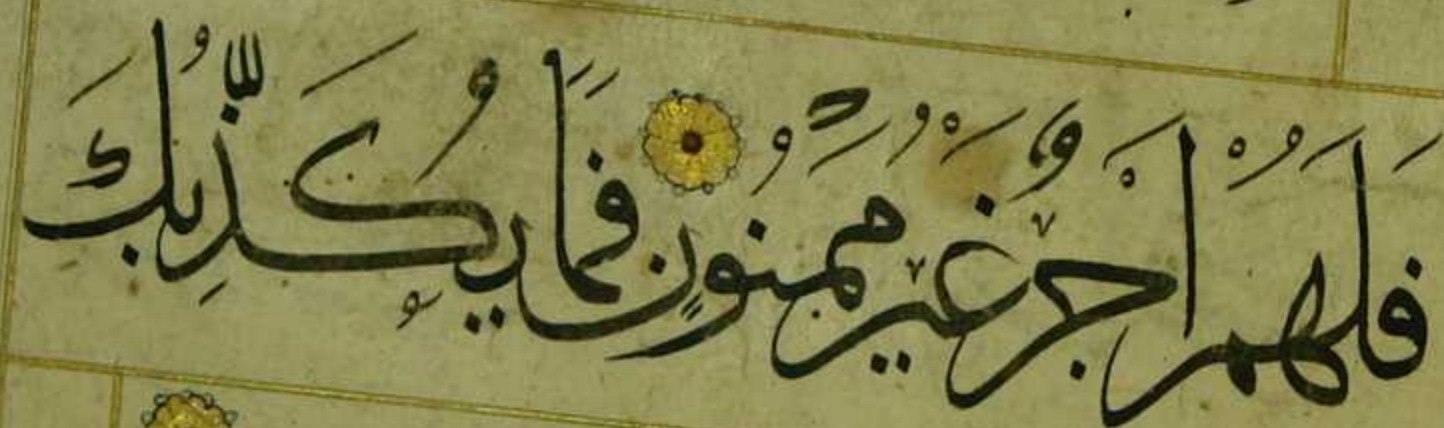 فَلَهُمْ اَجْرٌ غَيْرُ مَمْنُونٍ فَمَا يُكَذِّبُكَ